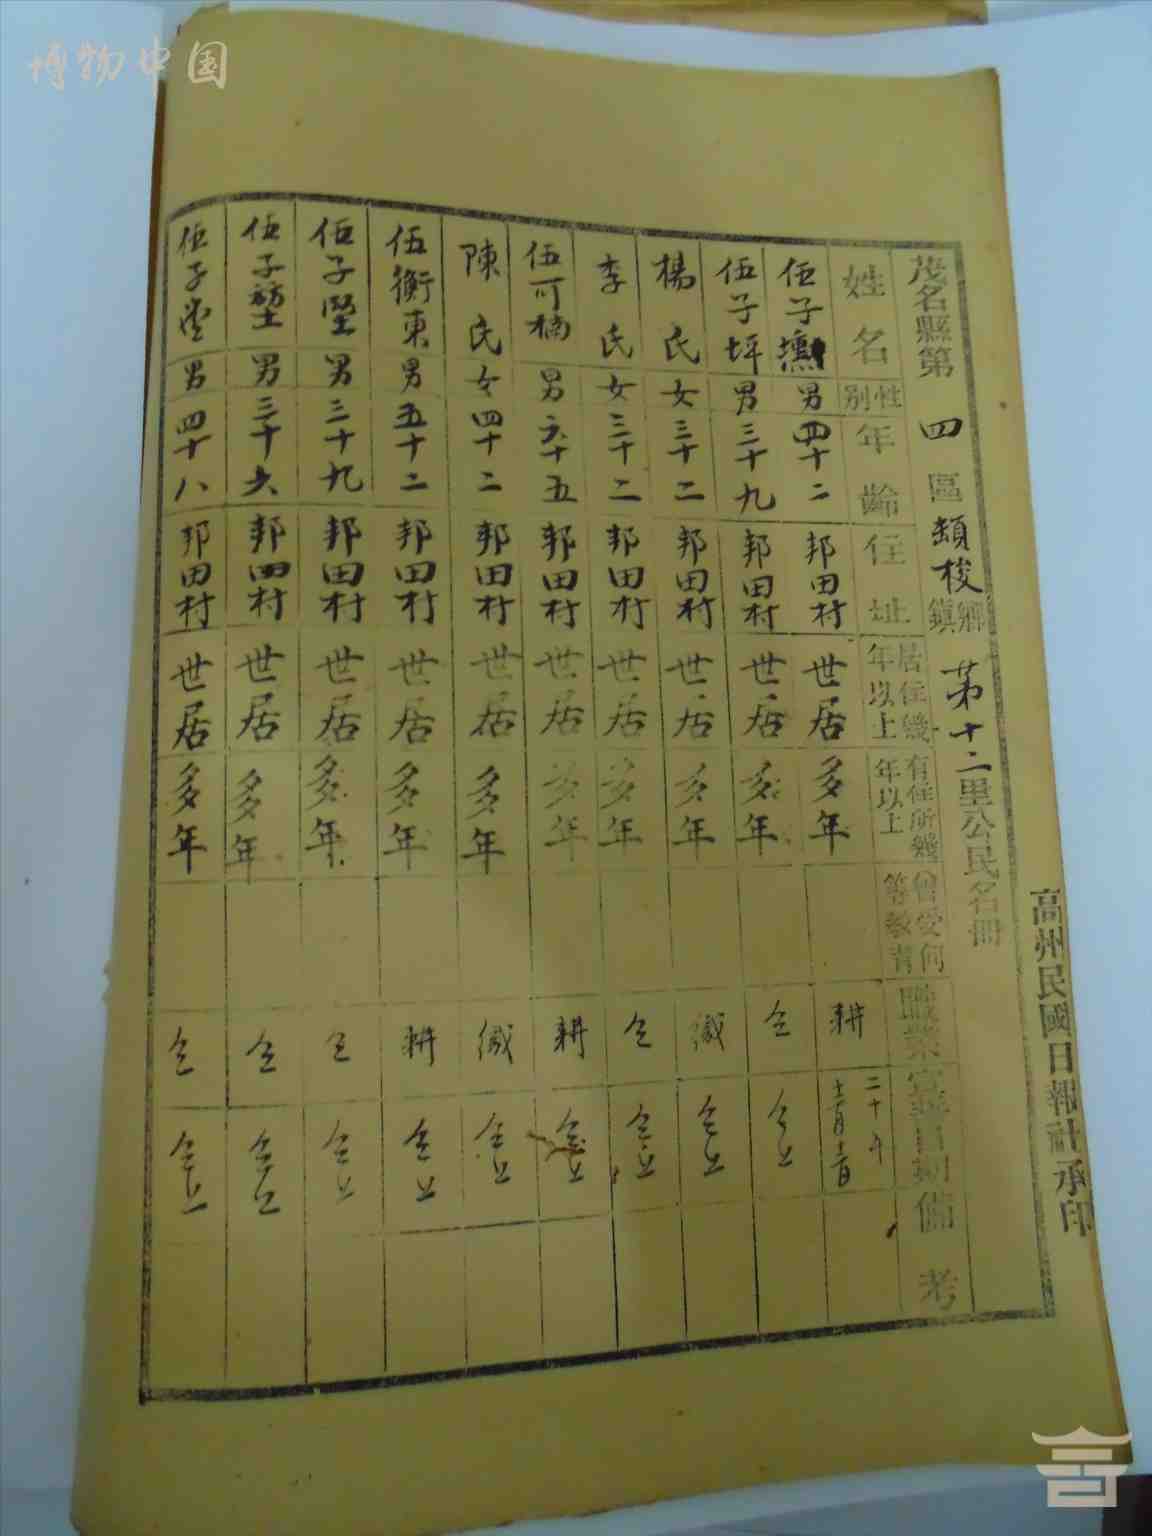 博物中国
高州民國日報社承印
茂名縣第四區頡梭鄉鎮第十二里公民名冊
姓名 性別 年齡 住址 居住幾年以上 有住所幾年以上 曾受何等教育 職業 宣誓日期 備考
伍子壎 男 四十二 邦田村 世居 多年 耕 二十年十二月十二日
伍子坪 男 三十九 邦田村 世居 多年 仝 仝上
楊氏 女 三十二 邦田村 世居 多年 織 仝上
李氏 女 三十二 邦田村 世居 多年 仝 仝上
伍可楠 男 六十五 邦田村 世居 多年 耕 仝上
陳氏 女 四十二 邦田村 世居 多年 織 仝上
伍衡東 男 五十二 邦田村 世居 多年 耕 仝上
伍子堅 男 三十九 邦田村 世居 多年 仝 仝上
伍子 男 三十六 邦田村 世居 多年 仝 仝上
伍子 男 四十八 邦田村 世居 多年 仝 仝上